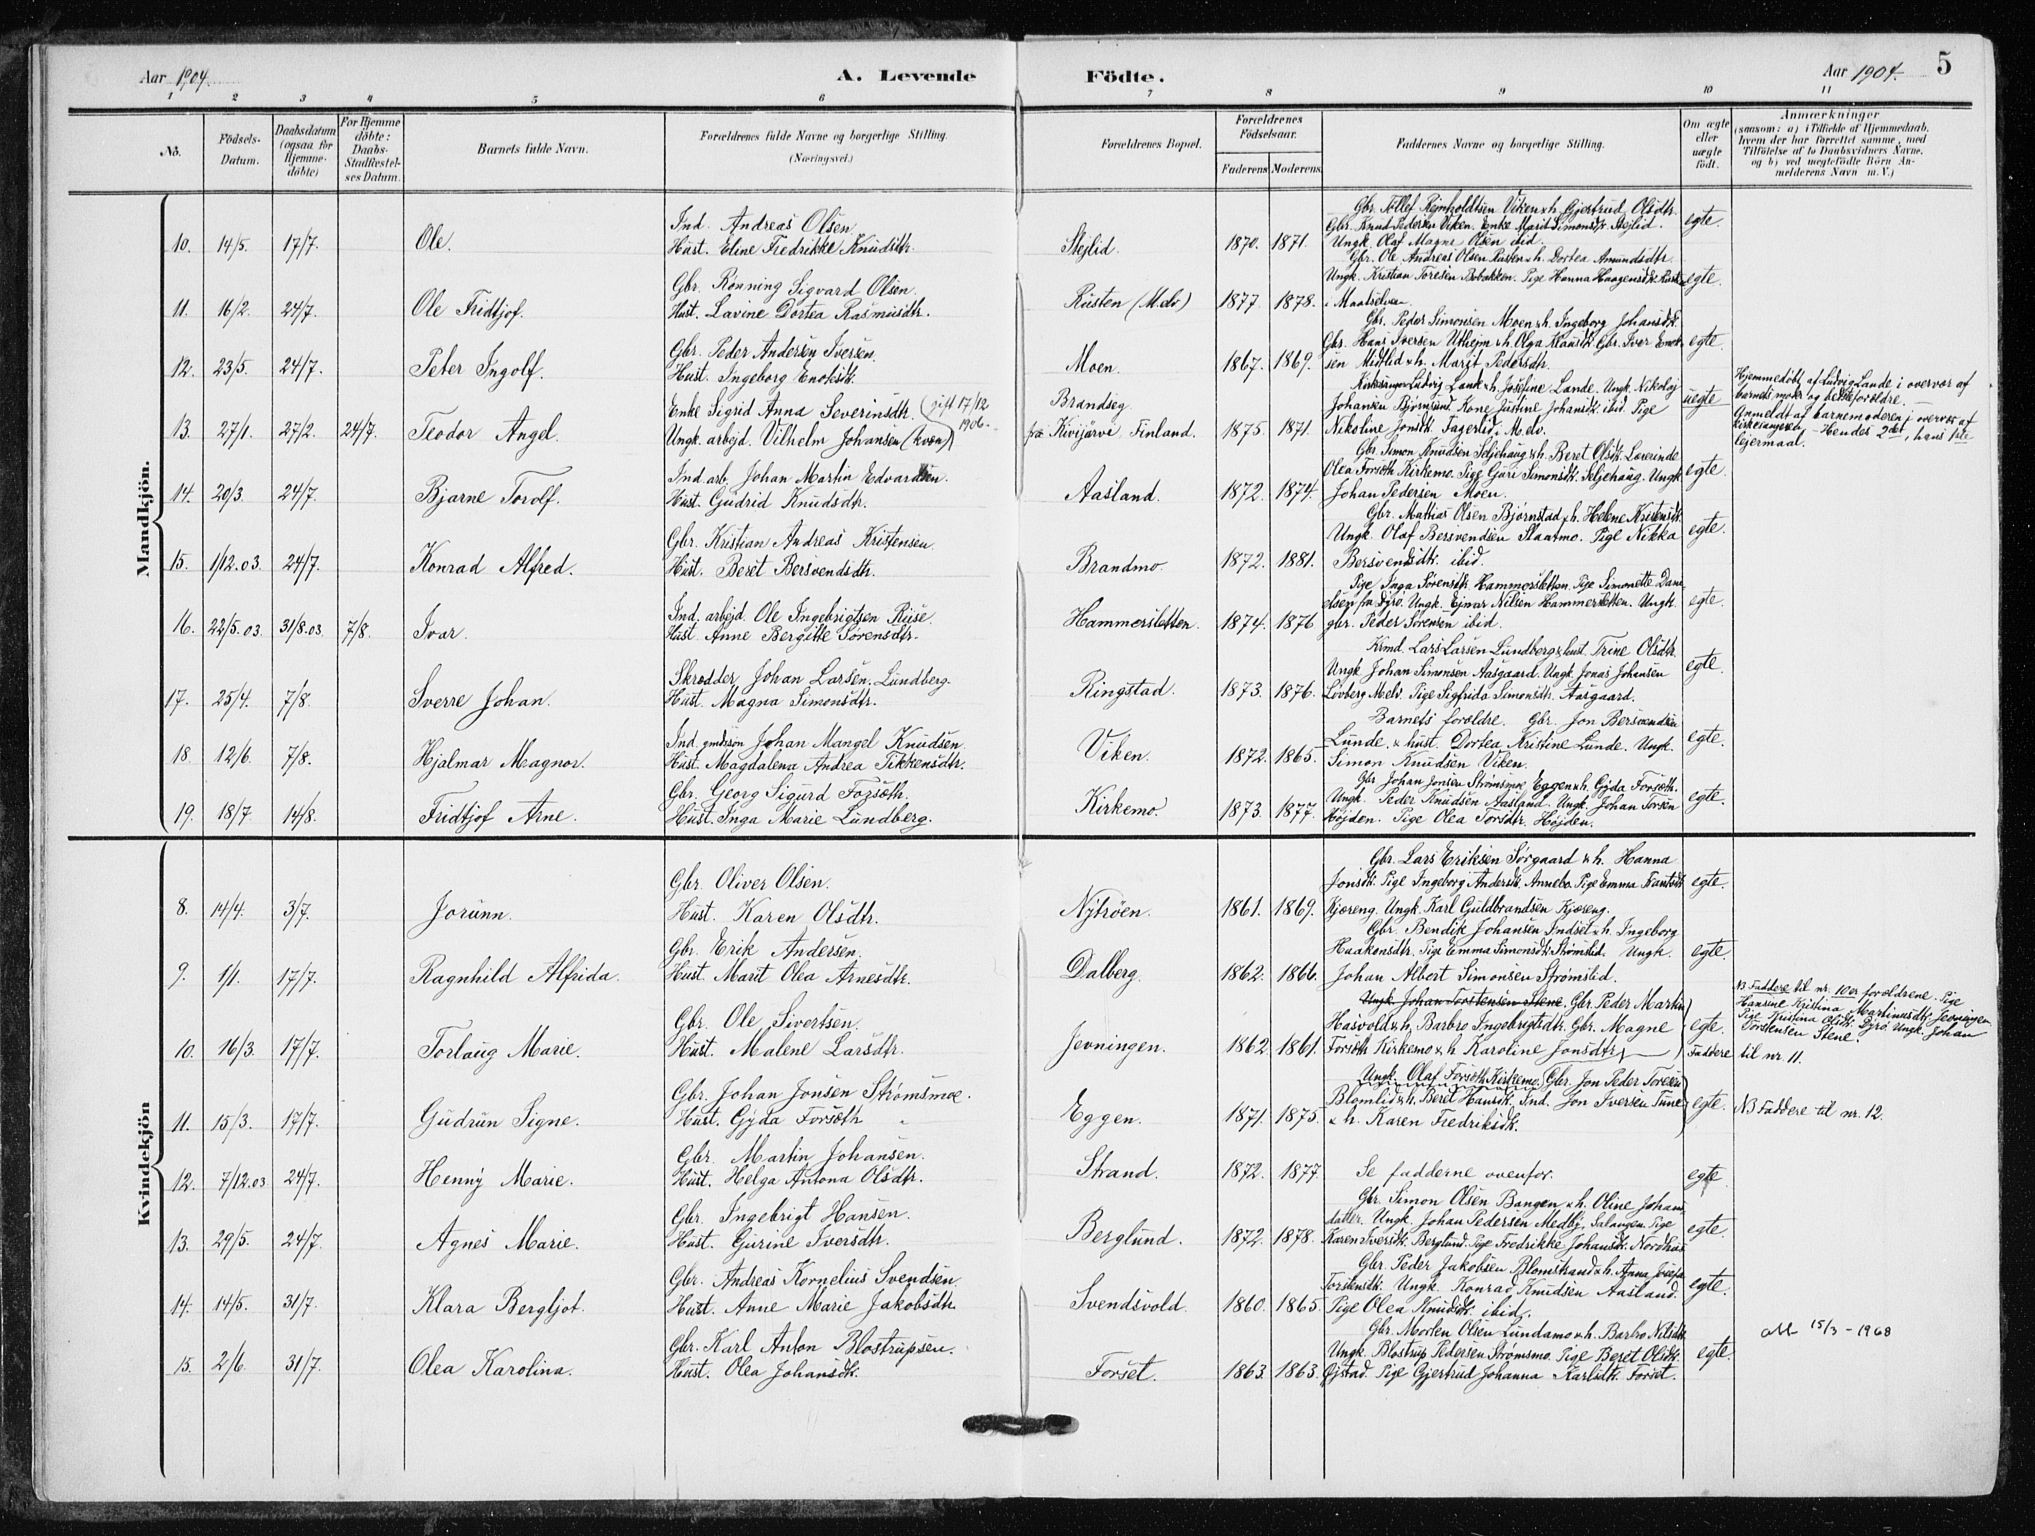 Aar 1904.
A. Levende
Födte.
Aar 1904.
5
1 2 3 4 5 6 7 8 9 10 11
No.
Födsels-Datum.
Daabsdatum (ogsaa for Hjemme-döbte)
For Hjemme döbte: Daabs-Stadfestel-ses Datum.
Barnets fulde Navn.
Forældrenes fulde Navne og borgerlige Stilling.
(Næringsvei.)
Forældrenes Bopæl.
Forældrenes Födselsaar.
Faderens Moderens
Faddernes Navne og borgerlige Stilling.
Om ægte eller uægte födt.
Anmærkninger
(saasom: a) i Tilfælde af Hjemmedaab, hvem der har forrettet samme, med Tilföielse af to Daabsvidners Navne, og b) ved uegtefödte Börn An-melderens Navn m.V.)
Mandkjön.
10. 14/5. 17/7. Ole.
Ind. Andreas Olsen.
Hust. Eline Fredrikke Knudsdtr.
Stejlid. 1870. 1871.
Gbr. Tollef Remholdtsen Viken & h. Gjertrud Olsdtr.
Gbr. Knud Pedersen Viken. Enke Marit Simonsdtr. Stejlid.
Ungk. Olaf Magnus Olsen ibid.
egte.
11. 16/2. 24/7. Ole Fridtjof.
Gbr. Rönning Sigvard Olsen.
Hust. Lavine Dortea Rasmusdtr.
Rusten (M.elv) 1877. 1878.
Gbr. Ole Andreas Olsen Rusten & h. Dortea Amundsdtr.
Ungk. Kristian Toresen Bobakken. Pige Hanna Haagensdtr. Rusten
i Maalselven.
egte.
12. 23/5. 24/7. Peter Ingolf.
Gbr. Peder Andersen Iversen.
Hust. Ingeborg Enoksdtr.
Moen. 1867. 1869.
Gbr. Peder Simonsen Moen & h. Ingeborg Johansdtr.
Gbr. Hans Iversen Utheim & h. Olga Hansdtr. Gbr. Iver Enok-
sen Medlid & h. Margit Pedersdtr.
egte.
13. 27/1. 27/2. 24/7. Teodor Angel.
Enke Sigrid Anna Severinsdtr. (gift 17/12 1906.
Ungk. arbejd. Vilhelm Johansen (kvæn)
Brandseg.
fra Kivijärvi Finland. 1875. 1871.
Kirkesanger Ludvig Lande & h. Josefine Lande. Ungk. Nikolaj
Johansen Björnsund. Kone Justine Johansdtr. ibid. Pige
Nikoline Jonsdtr. Fagerlid. M.elv.
uegte
Hjemmedöbt af Ludvig Lande i overvær af
barnets moder og bedsteforældre.
Anmeldt af barnemoderen i overvær af
kirkesangeren. – Hendes 2det, hans 1ste
lejermaal.
14. 20/3. 24/7. Bjarne Torolf.
Ind. arb. Johan Martin Edvardsen.
Hust. Gudrid Knudsdtr.
Aasland. 1872. 1874.
Gbr. Simon Knudsen Seljehaug & h. Beret Olsdtr. Lærerinde
Olea Forseth Kirkemo. Pige Guri Simonsdtr. Seljehaug. Ungk
Johan Pedersen Moen.
egte.
15. 1/12.03. 24/7. Konrad Alfred.
Gbr. Kristian Andreas Kristensen
Hust. Beret Bersvendsdtr.
Brandmo 1872. 1881.
Gbr. Mathias Olsen Björnstad & h. Helene Kristensdtr.
Ungk. Olaf Bersvendsen Slaatmo. Pige Nikka
Bersvendsdtr. ibid.
egte.
16. 22/5.03. 31/8.03. 7/8. Ivar.
Ind. arbejd. Ole Ingebrigtsen Riise.
Hust. Anne Bergitte Sörensdtr.
Hammersletten. 1874. 1876
Pige Inga Sörensdtr. Hammersletten. Pige Simonette Dani-
elsen fra Dyrö. Ungk. Ejnar Nilsen Hammersletten. Ungk.
gbr. Peder Sörensen ibid.
egte.
17. 25/4. 7/8. Sverre Johan.
Skrædder Johan Larsen Lundberg.
Hust. Magna Simonsdtr.
Ringstad. 1873. 1876.
Krmd. Lars Larsen Lundberg & hust. Trine Olsdtr.
Ungk. Johan Simonsen Aasgaard. Ungk. Jonas Johansen
Lövberg Melv. Pige Sigfrida Simonsdtr. Aasgaard.
egte.
18. 12/6. 7/8. Hjalmar Magnor.
Ind. Johan Mangel Knudsen.
Hust. Magdalena Andrea Tikkensdtr.
Viken. 1872. 1865.
Barnets forældre. Gbr. Jon Bersvendsen
Lunde. & hust. Dortea Kristine Lunde. Ungk.
Simon Knudsen Viken.
egte.
19. 18/7. 14/8. Fridtjof Arne.
Gbr. Georg Sigurd Forseth.
Hust. Inga Marie Lundberg.
Kirkemo. 1873. 1877.
Gbr. Johan Jonsen Strömsmoe Eggen & h. Gyda Forseth.
Ungk. Peder Knudsen Aasland. Ungk. Johan Torsen
Höjden. Pige Olea Torsdtr. Höjden.
egte.
Kvindekjön
8. 14/4. 3/7. Jorunn.
Gbr. Oliver Olsen.
Hust. Karen Olsdtr.
Nytröen. 1861. 1869.
Gbr. Lars Eriksen Sörgaard & h. Hanna
Jonsdtr. Pige Ingeborg Andersdtr. Annebo. Pige Emma Frantsdtr
Kjæreng. Ungk. Karl Guldbrandsen Kjæreng.
egte.
9. 1/1. 17/7. Ragnhild Alfrida.
Gbr. Erik Andersen.
Hust. Marit Olea Arnesdtr.
Dalberg. 1862. 1866.
Gbr. Bendik Johansen Indset & h. Ingeborg
Haakonsdtr. Pige Emma Simonsdtr. Strömslid. Ungk.
Johan Albert Simonsen Strömslid.
egte.
10. 16/3. 17/7. Torlaug Marie.
Gbr. Ole Sivertsen.
Hust. Malene Larsdtr.
Jevningen. 1862. 1861.
Ungk. Johan Torstensen Stene. Gbr. Peder Martin
Hasvold & h. Barbro Ingebrigtsdtr. Gbr. Magne
Forseth Kirkemo & h Karoline Jonsdtr.
egte.
Faddere til nr. 11.
NB Faddere til nr. 10 er forældrene. Pige
Hansine Kristina Martinusdtr. Jevningen
Pige Kristina Olsdtr. Dyrö. Ungk. Johan
Torstensen Stene.
11. 15/3. 17/7. Gudrun Signe.
Gbr. Johan Jonsen Strömsmoe.
Hust. Gyda Forseth
Eggen. 1871. 1875.
Ungk. Olaf Forseth Kirkemo. Gbr. Jon Peder Toresen
Blomlid & h. Beret Hansdtr. Ind. Jon Iversen Tune
& h. Karen Fredriksdtr.
egte.
NB Faddere til nr. 12.
12. 7/12.03 24/7. Henny Marie.
Gbr. Martin Johansen.
Hust. Helga Antona Olsdtr.
Strand. 1872. 1877.
Se fadderne ovenfor.
egte
13. 29/5. 24/7. Agnes Marie.
Gbr. Ingebrigt Hansen.
Hust. Gurine Iversdtr.
Berglund. 1872. 1878.
Gbr. Simon Olsen Bangen & h. Oline Johans-
datter. Ungk. Johan Pedersen Medby, Salangen. Pige
Karen Iversdtr. Berglund. Pige Fredrikke Johansdtr. Nordhus
egte.
14. 14/5. 31/7. Klara Bergljot.
Gbr. Andreas Kornelius Svendsen.
Hust. Anne Marie Jakobsdtr
Svendsvold. 1860. 1865.
Gbr. Peder Jakobsen Blomstrand & h. Anna Josefa
Torstensdtr. Ungk. Konrad Knudsen Aasland.
Pige Olea Knudsdtr. ibid.
egte.
15. 2/6. 31/7. Olea Karolina.
Gbr. Karl Anton Blostrupsen.
Hust. Olea Johansdtr.
Forset. 1863. 1863.
Gbr. Morten Olsen Lundamo & h. Barbro Nilsdtr.
Ungk. Blostrup Pedersen Strömsmo. Pige Beret Olsdtr.
Öjstad. Pige Gjertrud Johanna Karlsdtr. Forset.
egte.
15/3 - 1968